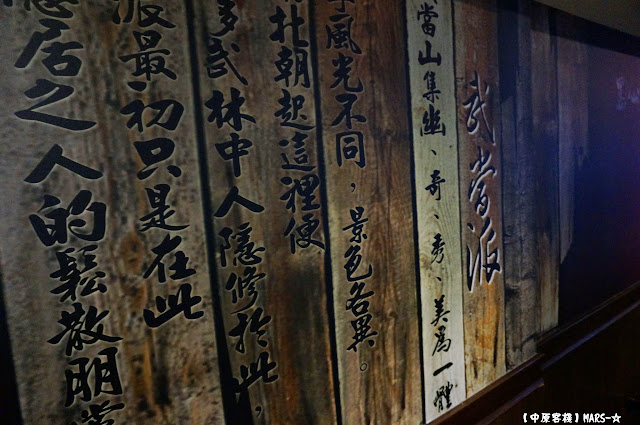 武當派
當山集幽、奇、秀、美為一體
風光不同，景色各異。
北朝起這裡便
多武林中人隱修於此，
派最初只是在此
隱居之人的鬆散朋
【中原客棧】MARS-☆